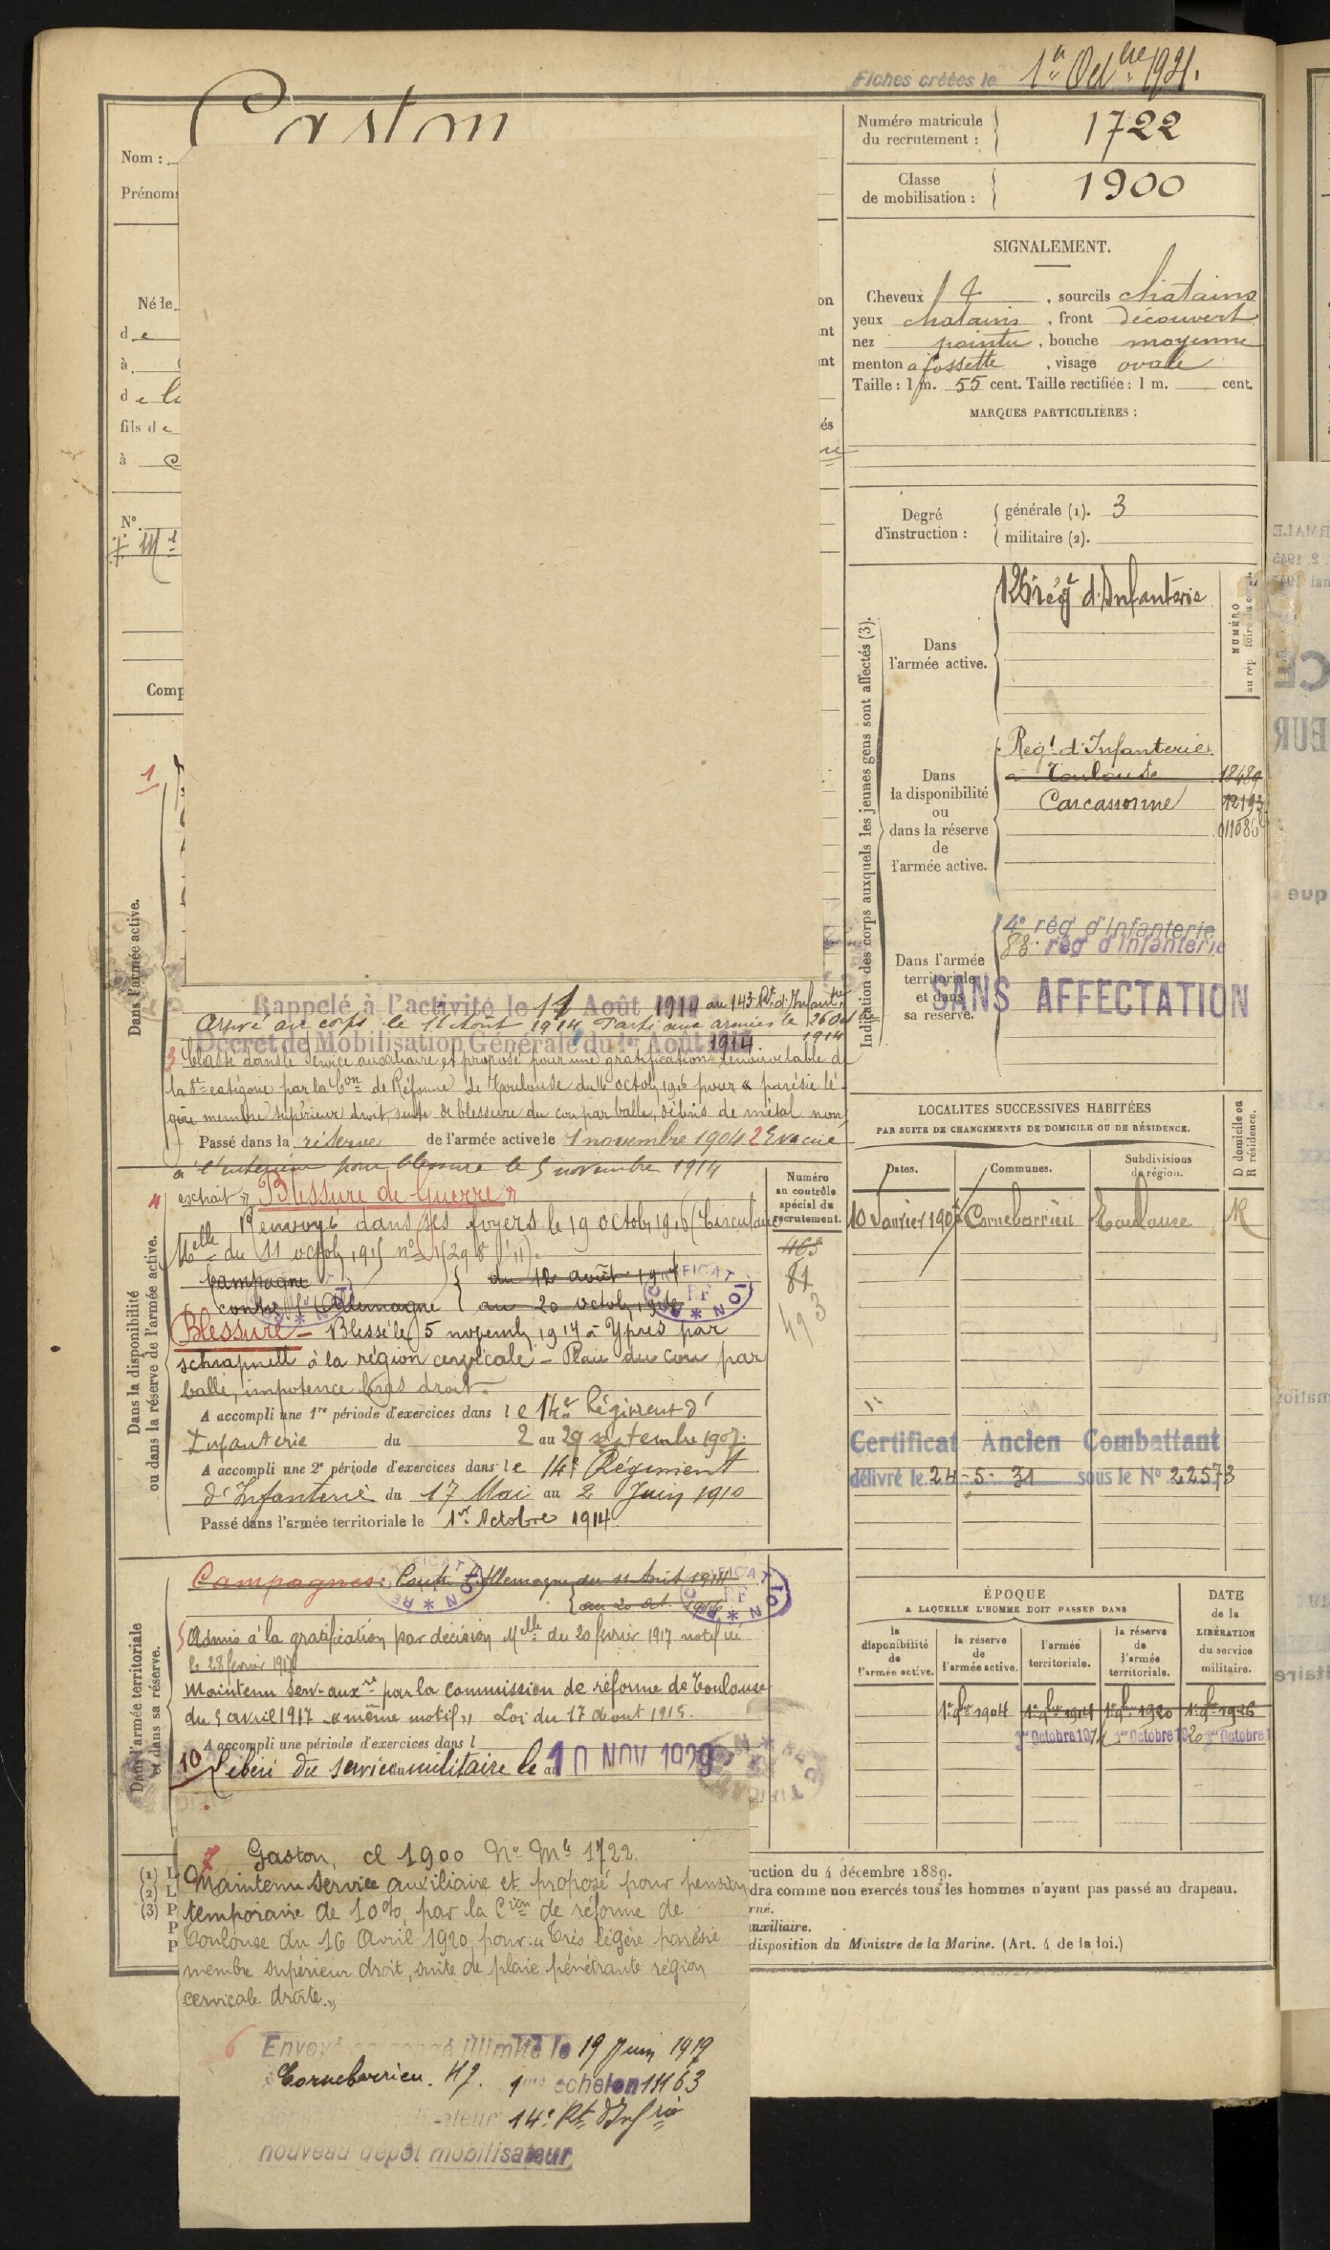 Fiches créées le 1er Octbre 1921.
Gaston
Nom :
Prénoms
Né le
de
à
de
fils de
à
N°
Comp
on
nt
nt
és
Numéro matricule
du recrutement :
1722
Classe
de mobilisation :
1900
SIGNALEMENT.
Cheveux , sourcils chatains
yeux chatains , front découvert
nez pointu , bouche moyenne
menton a fossette , visage ovale
Taille : 1 m. 55 cent. Taille rectifiée : 1 m. cent.
MARQUES PARTICULIÈRES :
Degré
d'instruction :
générale (1). 3
militaire (2).
Indication des corps auxquels les jeunes gens sont affectés (3).
Dans
l'armée active.
126e rég t d'Infanterie
NUMÉRO
Dans
la disponibilité
ou
dans la réserve
de
l'armée active.
Regt d'Infanterie
à Toulouse 18489
Carcassonne 12193
Dans l'armée
territoriale
et dans
sa réserve.
14e rég d'Infanterie
88e rég d'Infanterie
SANS AFFECTATION
Dans l'armée active.
1
Rappelé à l'activité le 11 Août 1914 au 143 Rt d'Infantrie
Arrivé au corps le 11 Août 1914 Parti aux armées le 26 Oct 1914
Décret de Mobilisation Générale du 1er Août 1914
3 Classé dans le service auxiliaire et proposé pour une gratification renouvelable de
la 8e catégorie par la Con de Réforme de Toulouse du 16 octob 1916 pour "parésie lé-
gère membre supérieur droit, suite de blessure du cou par balle, débris de métal non
Passé dans la réserve de l'armée active le 1 novembre 1904 2 Evacué
à l'intérieur pour blessure le 5 novembre 1914
Dans la disponibilité
ou dans la réserve de l'armée active.
4
extrait" Blessure de Guerre "
Renvoyé dans ses foyers le 19 octob 1916 (Circulaire
Melle du 11 octob 1915 n°
Campagne du 12 août 1914
contre l'Allemagne au 20 octob 1916
Blessure - Blessé le 5 novemb 1914 à Ypres par
schrapnell à la région cervicale - Plaie du cou par
balle, impotence bras droit.
A accompli une 1re période d'exercices dans le 14e Régiment d'
Infanterie du 2 au 29 septembre 1907.
A accompli une 2e période d'exercices dans le 14e Régiment
d'Infanterie du 17 Mai au 2 Juin 1910
Passé dans l'armée territoriale le 1er Octobre 1914
Numéro
au contrôle
spécial du
recrutement.
465
81
493
LOCALITÉS SUCCESSIVES HABITÉES
PAR SUITE DE CHANGEMENTS DE DOMICILE OU DE RÉSIDENCE.
D domicile ou
R résidence.
Dates.
Communes.
Subdivisions
de région.
10 Janvier 1907 Cornebarrieu Toulouse R
Certificat Ancien Combattant
délivré le 24-5-31 sous le N° 22573
Dans l'armée territoriale
et dans sa réserve.
Campagnes: Contre l'Allemagne du 11 Août 1914
au 20 Oct. 1916
5 Admis à la gratification par décision Melle du 20 février 1917 notifiée
le 28 février 1917
Maintenu Serv. auxre par la commission de réforme de Toulouse
du 5 avril 1917 "même motif" Loi du 17 Aout 1915.
A accompli une période d'exercices dans l
10 Libéré du service militaire le 10 NOV 1929
ÉPOQUE
A LAQUELLE L'HOMME DOIT PASSER DANS
DATE
de la
LIBÉRATION
du service
militaire.
la
disponibilité
de
l'armée active.
la réserve
de
l'armée active.
l'armée
territoriale.
la réserve
de
l'armée
territoriale.
1er 9bre 1904 1er 9bre 1914 1er 9bre 1920 1er 9bre 1926
1er Octobre 1914 1er Octobre 1920 1er Octobre
(1) L
(2) L
(3) P
P
P
ruction du 4 décembre 1889.
dra comme non exercés tous les hommes n'ayant pas passé au drapeau.
rné.
auxiliaire.
disposition du Ministre de la Marine. (Art. 4 de la loi.)
Gaston, cl 1900 N° Mle 1722.
Maintenu Service auxiliaire et proposé pour pension
temporaire de 10%, par la Cion de réforme de
Toulouse du 16 Avril 1920, pour: "Très légère parésie
membre supérieur droit, suite de plaie pénétrante région
cervicale droite."
6 Envoyé en congé illimité le 19 Juin 1919
Cornebarrieu. Hg. 1me échelon 11163
14e Rt d'Infrie
nouveau dépôt mobilisateur